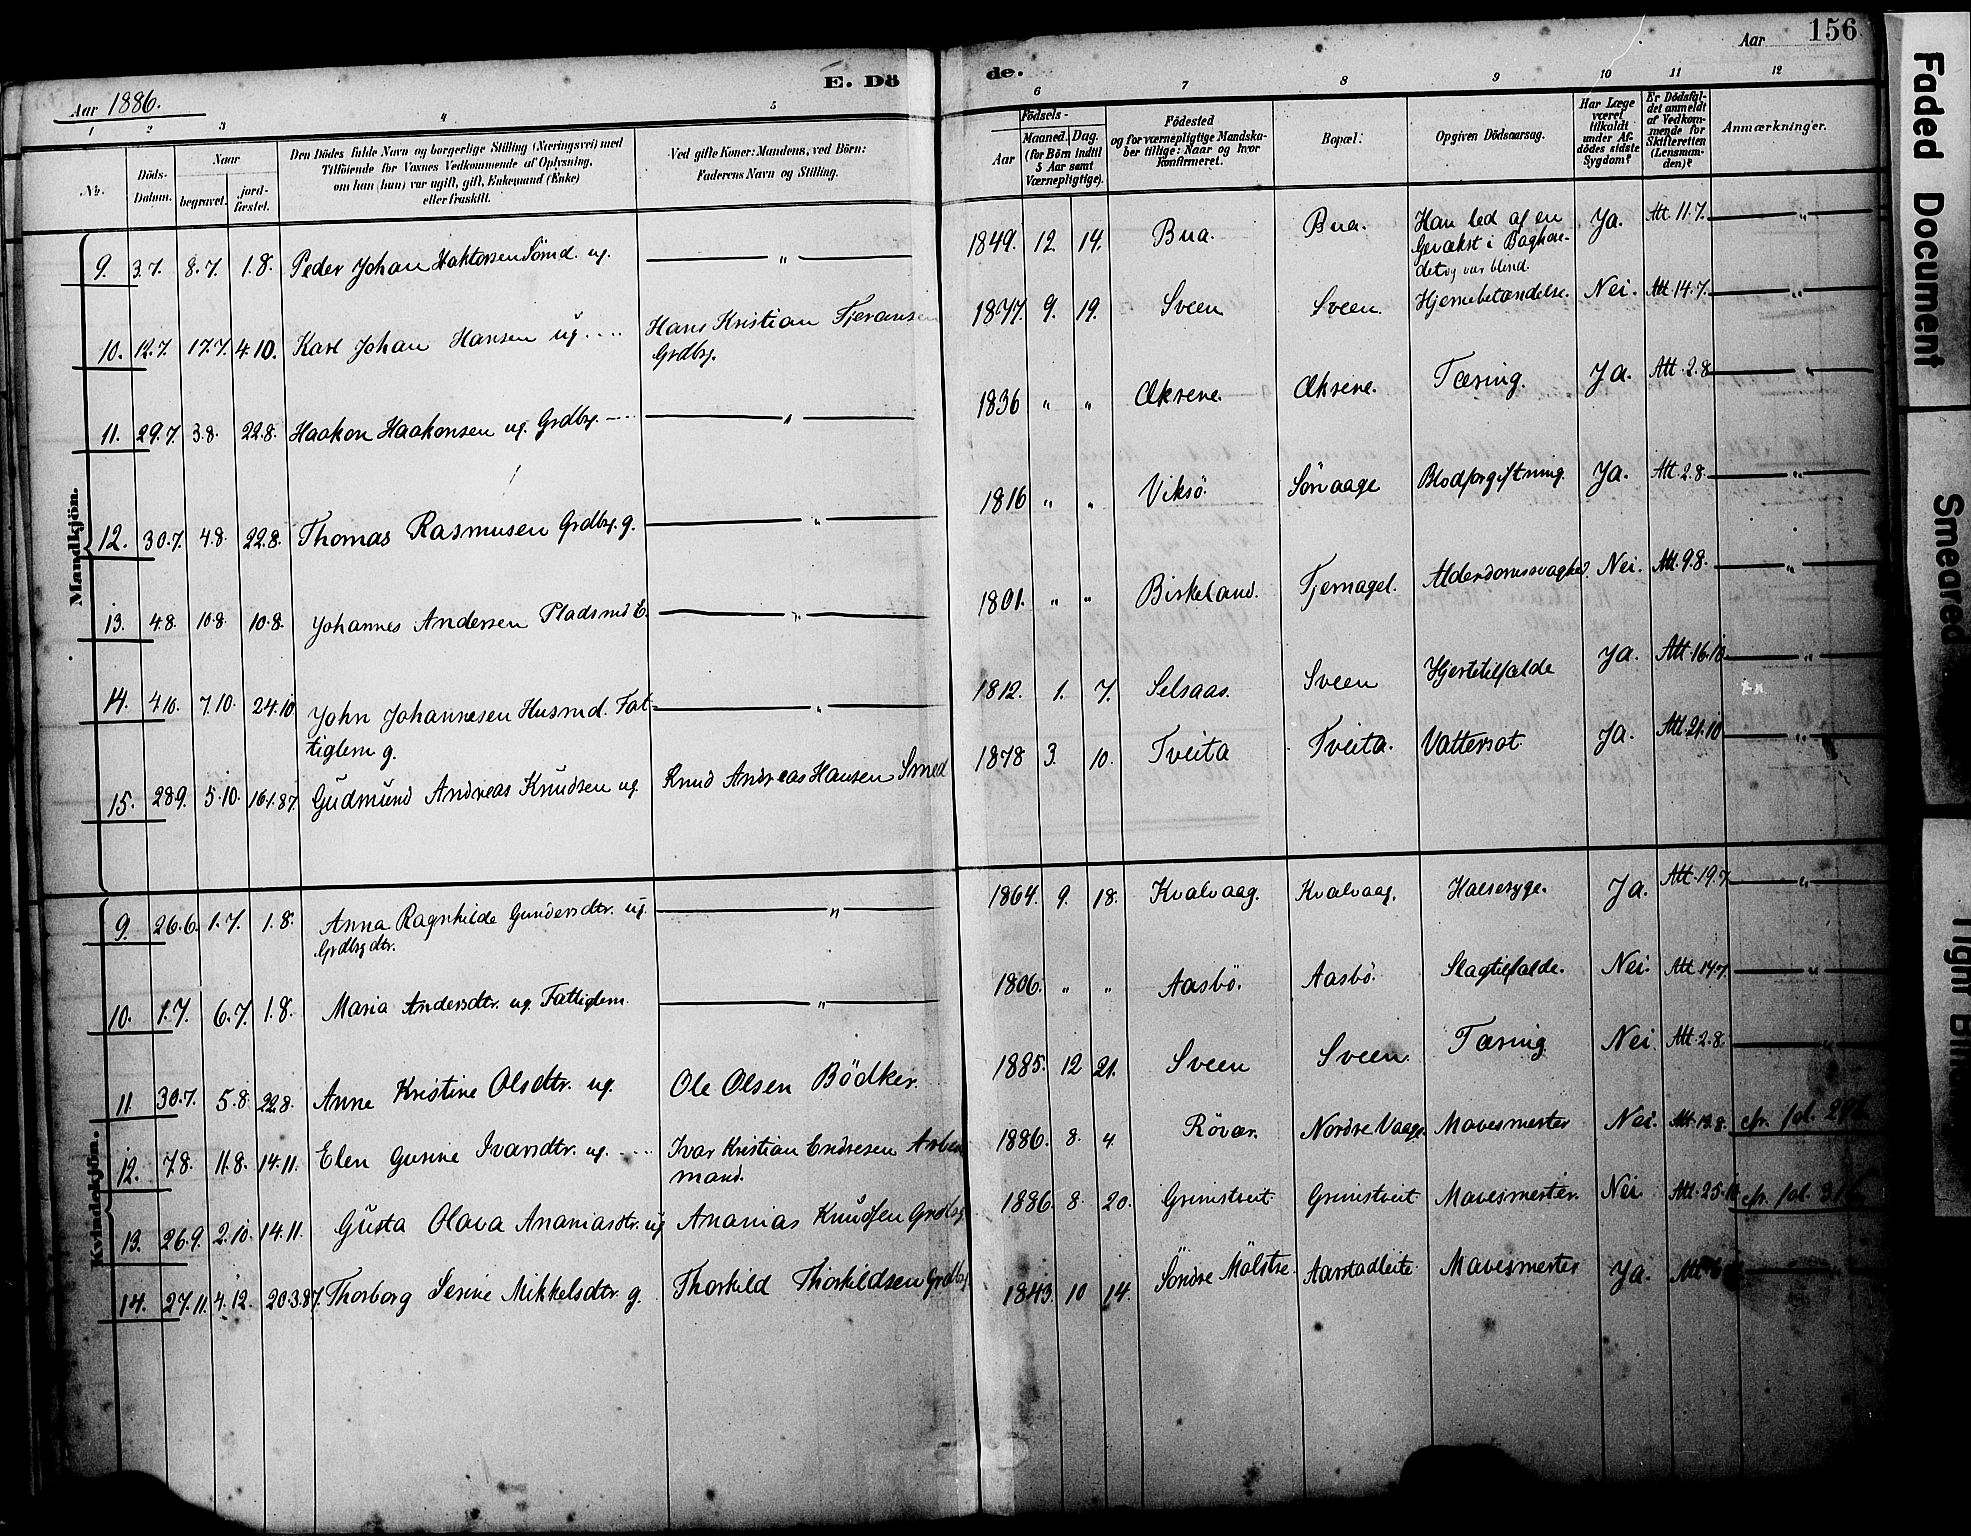 156
Aar 1886.
E. Döde.
Aar
1 2 3 4 5 6 7 8 9 10 11 12
Nr.
Döds-Datum.
Naar
begravet.
jord-fæstet.
Den Dödes fulde Navn og borgerlige Stilling (Næringsvei) med
Tilföiende for Voxnes Vedkommende af Oplysning,
om han (hun) var ugift, gift, Enkemand (Enke)
eller fraskilt.
Ved gifte Koner: Mandens, ved Börn:
Faderens Navn og Stilling.
Födsels-
Aar
Maaned. Dag.
(for Börn indtil
5 Aar samt
Værnepligtige).
Födested
og for værnepligtige Mandska-
ber tillige: Naar og hvor
konfirmeret.
Bopæl:
Opgiven Dödsaarsag.
Har Læge
været
tilkaldt
under Af-
dödes sidste
Sygdom?
Er Dödsfal-
det anmeldt
af Vedkom-
mende for
Skifteretten
(Lensman-
den)?
Anmærkninger.
Mandkjön.
9. 3.7. 8.7. 1.8. Peder Johan Sömd. ug. " 1849. 12. 14. Bua. Bua. Han led af en Ja. Att. 11.7. "
Gevækst i Baghove-
det og var blind.
10. 12.7. 17.7. 4.10. Karl Johan Hansen ug. Hans Kristian 1877. 9. 19. Sveen Sveen. Hjernebetændelse. Nei. Att. 14.7. "
Grdbr.
11. 29.7. 3.8. 22.8. Haakon Haakonsen ug. Grdbr. " 1836 " " Økrene. Økrene. Tæring. Ja. Att. 2.8. "
12. 30.7. 4.8. 22.8. Thomas Rasmusen Grdbr. g. " 1816 " " Viksö. Sönvaage Blodforgiftning. Ja. Att. 2.8. "
13. 4.8. 10.8. 10.8. Johannes Andersen Pladsmd E. " 1801. " " Birkeland. Tjernagel. Alderdomssvaghed. Nei. Att. 9.8. "
14. 4.10. 7.10. 24.10 John Johannesen Husmd. Fat- " 1812. 1. 7. Selsaas. Sveen Hjertetilfælde Ja. Att. 16.10. "
tiglem g.
15. 28.9. 5.10. 16.1.87. Gudmund Andreas Knudsen ug. Knud Andreas Hansen Smed 1878 3. 10. Tveita Tveita. Vattersot. Ja. Att. 21.10 "
Kvindekjön.
9. 26.6. 1.7. 1.8. Anna Ragnhilde Gundersdtr. ug. " 1864. 9. 18. Kvalvaag. Kvalvaag. Halsesyge. Ja. Att. 19.7. "
Grdbrgdtr.
10. 1.7. 6.7. 1.8. Maria Andersdtr. ug. Fattiglem. " 1806. " " Aasbö. Aasbö. Slagtilfælde. Nei. Att. 14.7. "
11. 30.7. 5.8. 22.8. Anne Kristine Olsdtr. ug. Ole Olsen Bödker. 1885. 12 21. Sveen Sveen. Tæring Nei. Att. 2.8. "
12. 7.8. 11.8. 14.11. Elen Gurine Ivarsdtr. ug. Ivar Kristian Endresen 1886. 8. 4. Rövær. Nordre Vaage Mavesmerter Nei. Att. 13.8. cfr. fol.
mand.
13. 26.9. 2.10. 14.11. Gusta Olava Ananiasdtr. ug Ananias Knudsen Grdbr 1886. 8. 20. Grimstveit Grimstveit Mavesmerter. Nei Att. 25.10 cfr. fol.
14. 27.11. 4.12. 20.3.87. Thorborg Serine Mikkelsdtr. g. Thorkild Thorkildsen Grdbr. 1843. 10 14. Söndre Mölstre. Aarstadleite Mavesmerter Ja. Att.
Faded Document
Smeared